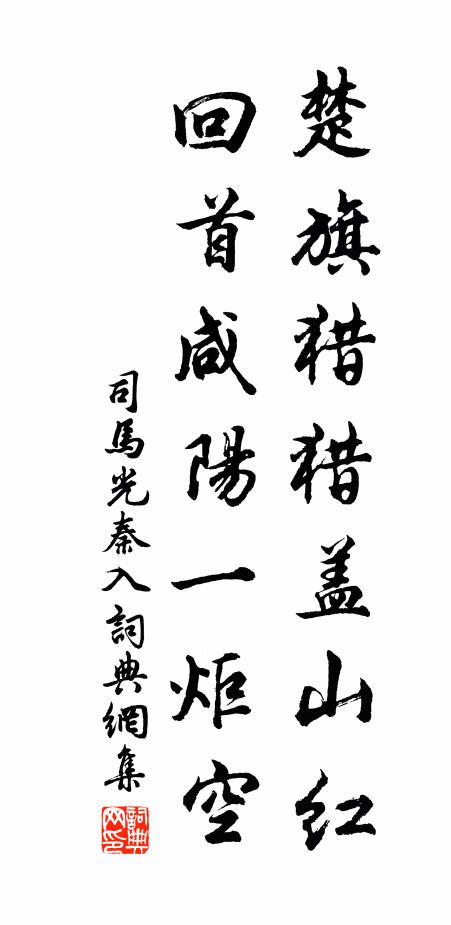 楚旗猎猎盖山红
回首咸陽一炬空
司馬光秦人詞典網集
詞典网印